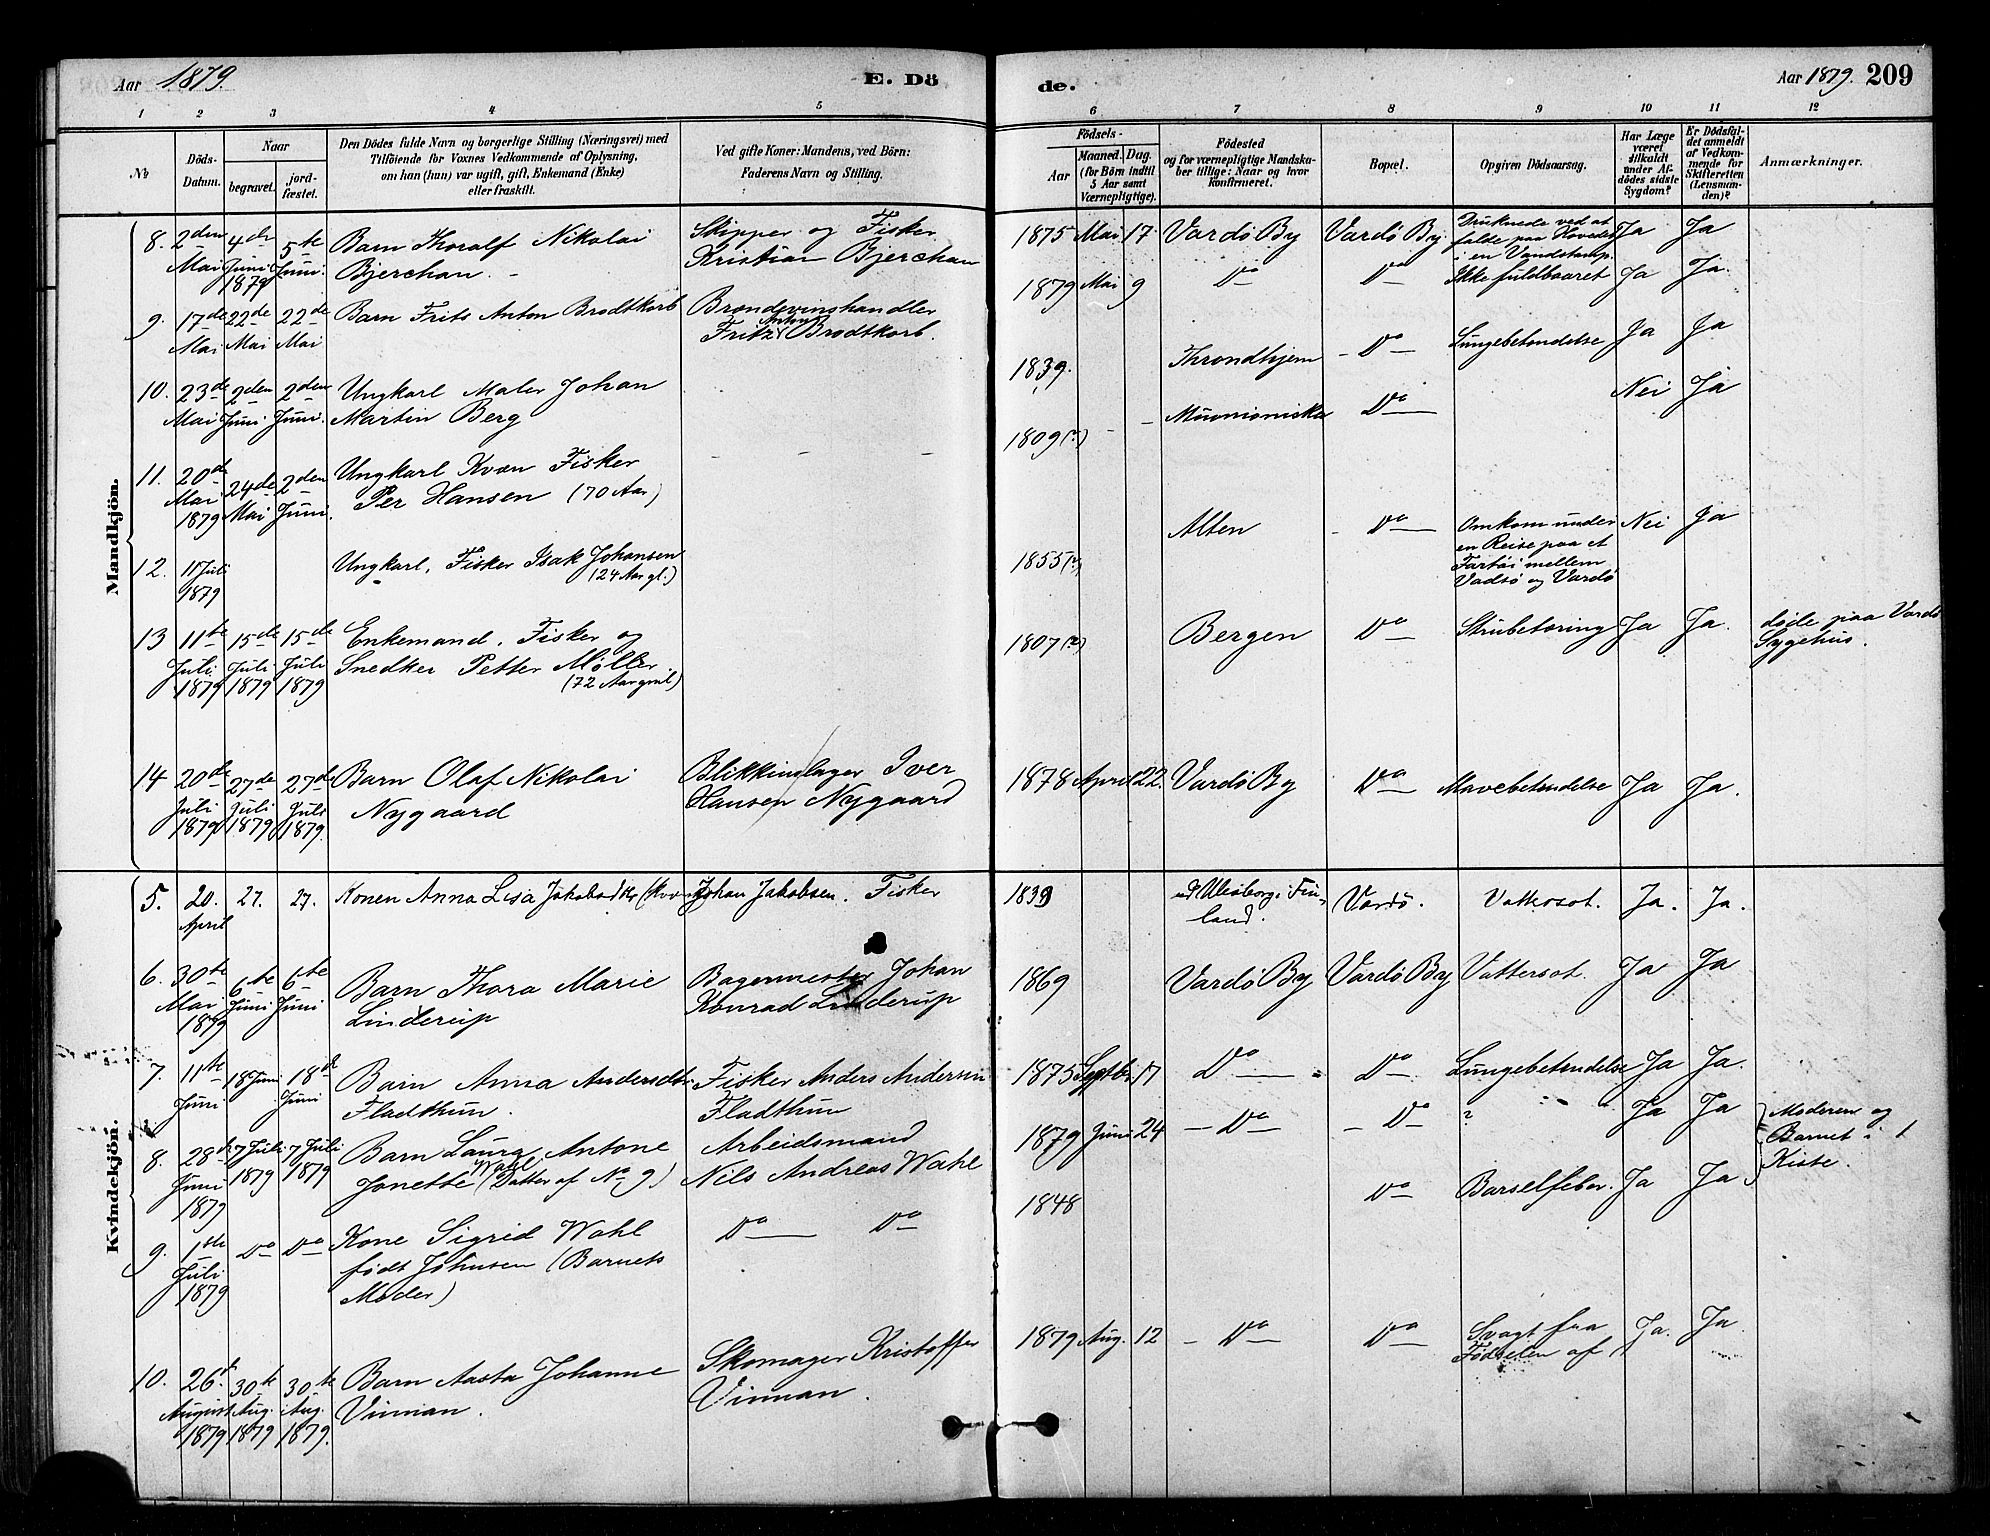 Aar 1879. E. Dö
de. Aar 1879. 209
1 2 3 4 5
6 7 8 9 10 11 12
No
Döds-
Datum.
Naar
begravet.
jord-
fæstet.
Den Dödes fulde Navn og borgerlige Stilling (Næringsvei) med
Tilföiende for Voxnes Vedkommende af Oplysning,
om han (hun) var ugift, gift, Enkemand (Enke)
eller fraskilt.
Ved gifte Koner: Mandens, ved Börn:
Faderens Navn og Stilling.
Födsels-
Aar
Maaned. Dag.
(for Börn indtil
5 Aar samt
Værnepligtige).
Födested
og for værnepligtige Mandska-
ber tillige: Naar og hvor
konfirmeret.
Bopæl.
Opgiven Dödsaarsag.
Har Læge
været
tilkaldt
under Af-
dödes sidste
Sygdom?
Er Dödsfal-
det anmeldt
af Vedkom-
mende for
Skifteretten
(Lensman-
den)?
Anmærkninger.
Mandkjön.
8. 2den Mai
4de Juni 1879
5te Juni.
Barn Thoralf Nikolai
Bjerchan.
Skipper og Fisker
Kristian Bjerchan
1875 Mai 17. Vardö By Vardö By.
Druknede ved at
falde paa Hovedet
i en Vandstamp.
Ja Ja
9. 17de Mai
22de Mai
22de Mai
Barn Frits Anton Brodtkorb
Brændevinshandler
Fritz Anton Brodtkorb.
1879 Mai 9 Do Do Ikke fuldbaaret Ja Ja.
10. 23de Mai
2den Juni
2den Juni.
Ungkarl Maler Johan
Martin Berg
1839. Throndhjem Do Lungebetendelse Ja Ja
11. 20de Mai 1879
24de Mai
2den Juni.
Ungkarl Kvæn Fisker
Per Hansen (70 Aar)
1809(?) Muonioniska Do Nei Ja
12. 1 Juli 1879
Ungkarl, Fisker Isak Johansen
(24 Aar gl.)
1855(?) Alten Do
Omkom under
en Reise paa et
Fartöi mellem
Vadsö og Vardö
Nei Ja
13 11te Juli 1879
15de Juli 1879
15de Juli 1879
Enkemand, Fisker og
Snedker Petter Møller
(72 Aar gml)
1807(?) Bergen Do Strubetæring Ja Ja.
døde paa Vardö
Sygehus.
14 20de Juli 1879
27de Juli 1879
27de Juli 1879.
Barn Olaf Nikolai
Nygaard
Blikkinslager Iver
Hansen Nygaard
1878 April 22. Vardö By Do Mavebetendelse Ja Ja.
Kvindekjön.
5. 20. April 27. 27.
Konen Anna Lisa Jakobsdtr
Johan Jakobsen. Fisker
1839
Uleåborg i Fin-
land.
Vardö. Vattersot. Ja. Ja.
6. 30te Mai 1879
6te Juni
6te Juni
Barn Thora Marie
Linderup
Bagermester Johan
Konrad Linderup
1869 Vardö By Vardö By Vattersot. Ja Ja
7. 11te Juni
18 Juni
18de Juni
Barn Anna Andersdtr.
Fladthun.
Fisker Anders Andersen
Fladthun
1875 Septbr. 17 Do Do Lungebetendelse Ja Ja.
8. 28de Juni 1879
7 Juli 1879
7 Juli 1879
Barn Laura Antone
Jonette Wahl (Datter af No 9)
Arbeidsmand
Nils Andreas Wahl
1879 Juni 24 Do Do ? Ja Ja
Moderen og
Barnet i 1
Kiste.
9. 1ste Juli 1879
Do Do
Kone Sigrid Wahl
født Johnsen (Barnets
Moder)
Do Do
1848 Do Barselfeber. Ja Ja
10. 26de August 1879
30te Aug. 1879
30te Aug. 1879.
Barn Aasta Johanne
Vinman.
Skomager Kristoffer
Vinman.
1879 Aug. 12 Do Do
Svagt fra
Fødselen af
Ja. Ja